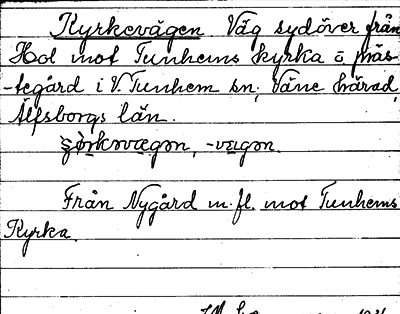 Kyrkevägen Väg sydöver från
Hol mot Tunhems kyrka o präs-
-tegård i V. Tunhem sn, Väne härad,
Älfsborgs län.
-vægən.
Från Nygård m. fl. mot Tunhems
Kyrka.